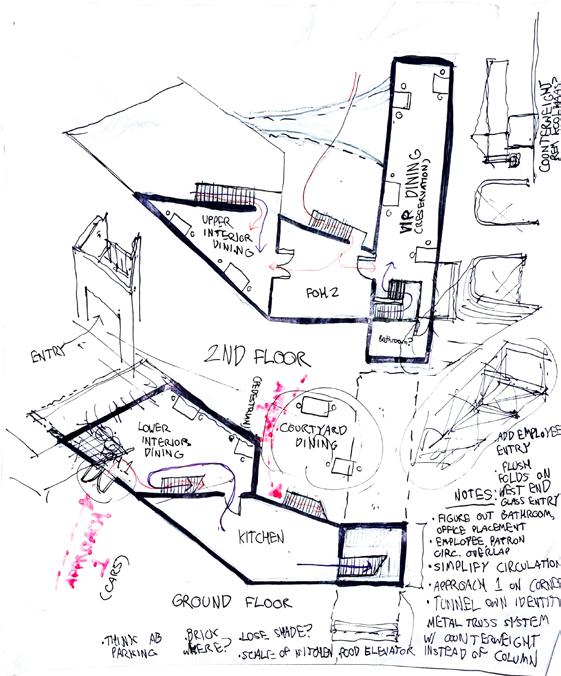 COUNTERWEIGHT
REM KOOLHAAS?
VIP DINING
(RESERVATION)
UPPER
INTERIOR
DINING
FOH 2
Bathroom?
ENTRY
2ND FLOOR
(PEDESTRIAN)
COURTYARD
DINING
LOWER
INTERIOR
DINING
KITCHEN
APPROACH
1
(CARS)
GROUND FLOOR
ADD EMPLOYEE
ENTRY
FLUSH
FOLDS ON
WEST END
GLASS ENTRY
NOTES:
• FIGURE OUT BATHROOM,
OFFICE PLACEMENT
• EMPLOYEE, PATRON
CIRC. OVERLAP
• SIMPLIFY CIRCULATION
• APPROACH 1 ON CORNER
• TUNNEL OWN IDENTITY
METAL TRUSS SYSTEM
W/ COUNTERWEIGHT
INSTEAD OF COLUMN
• THINK AB
PARKING
• BRICK
WHERE?
• LOSE SHADE?
• SCALE OF KITCHEN FOOD ELEVATOR